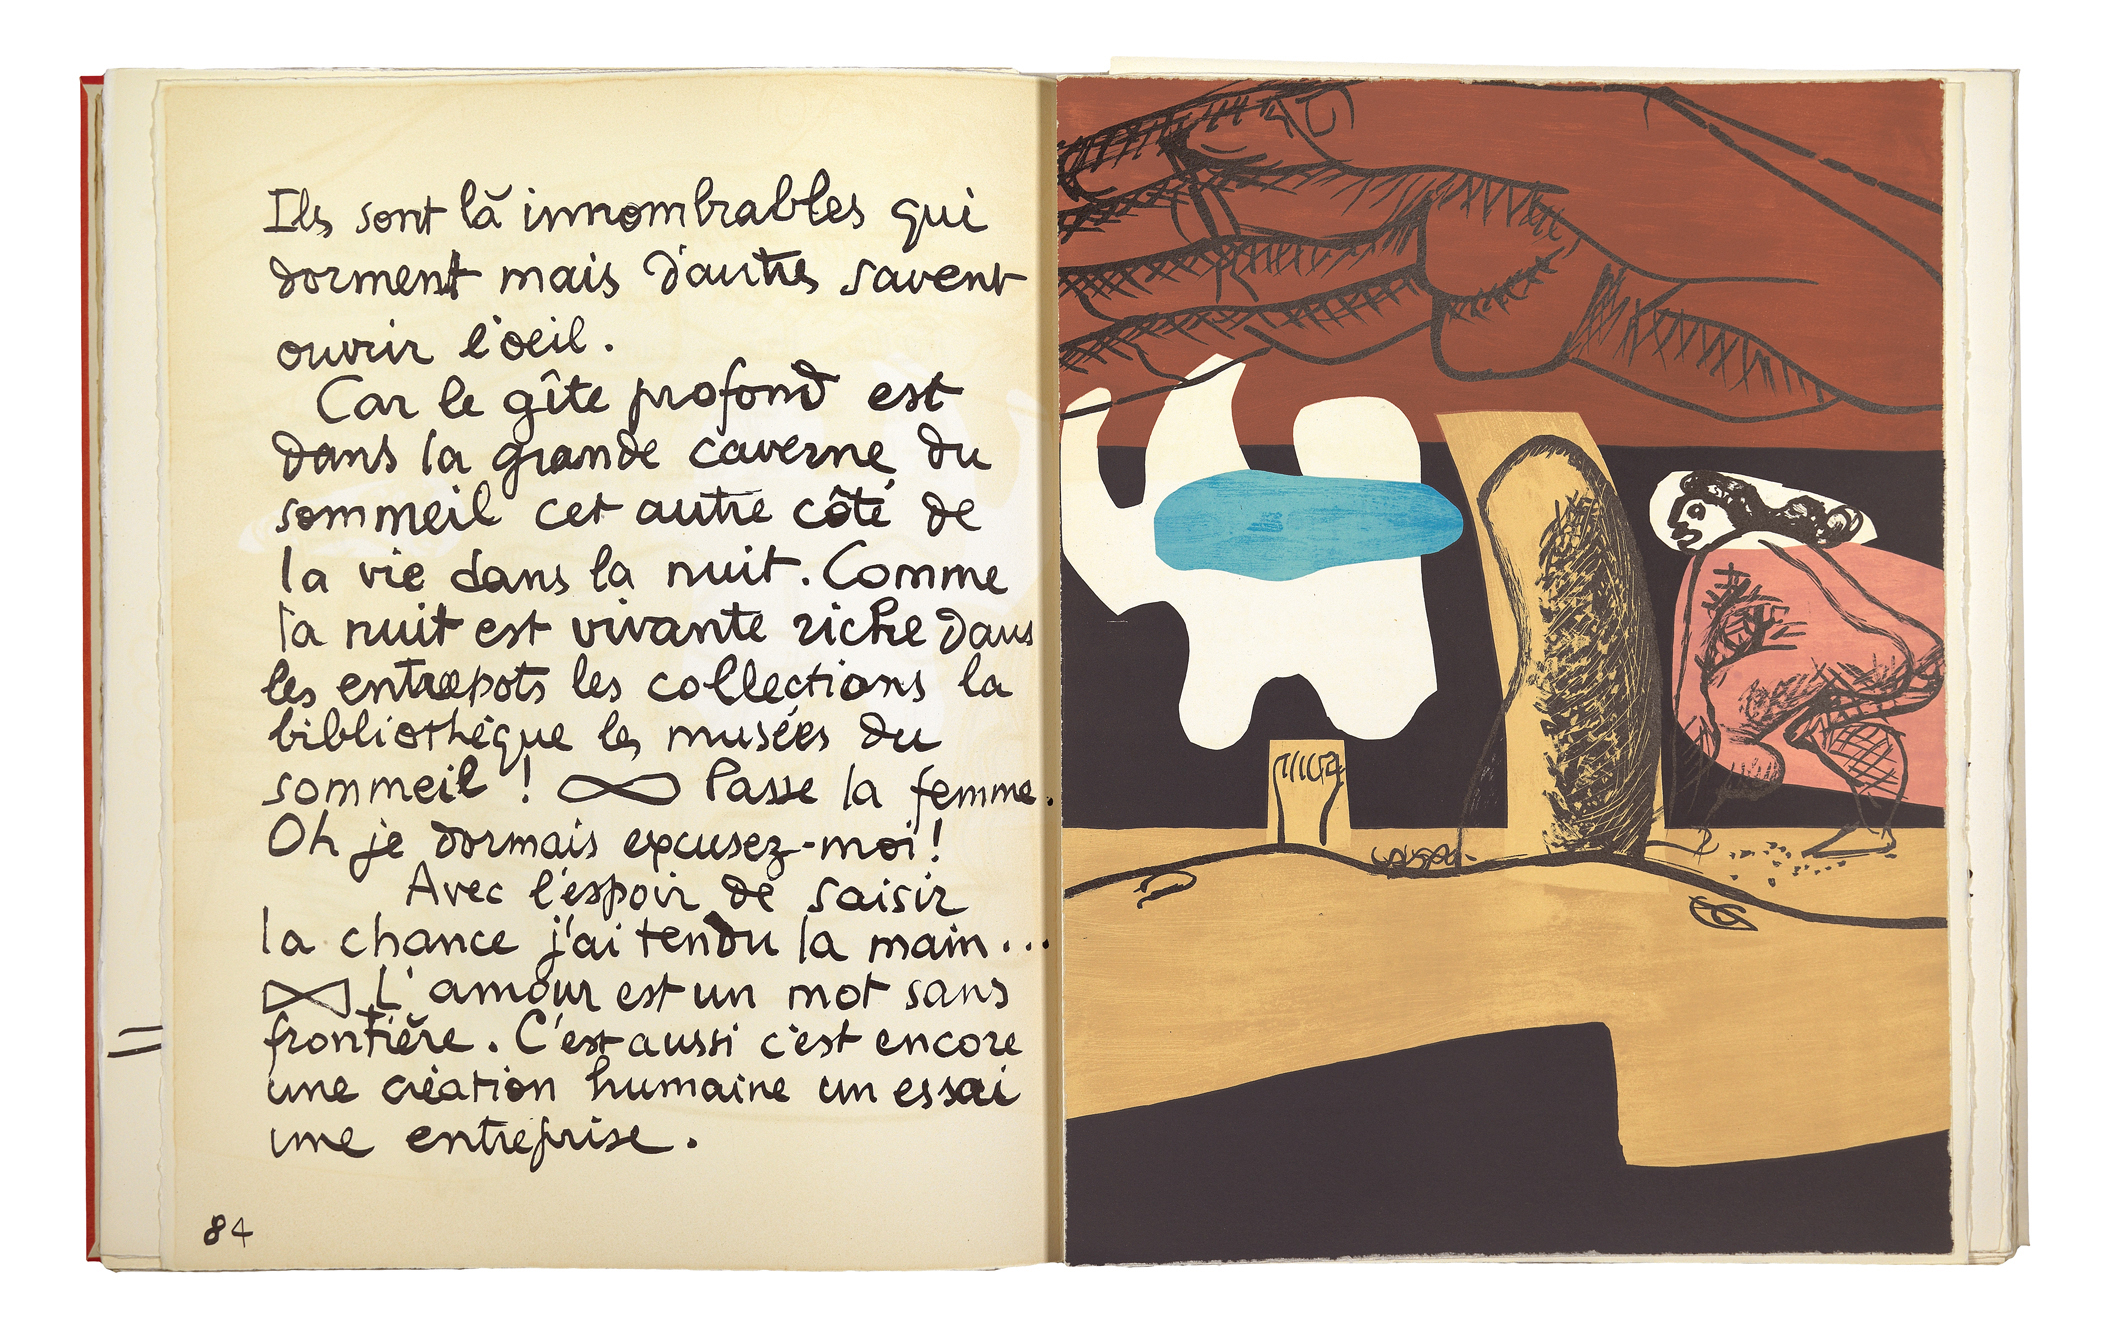 Ils sont là innombrables qui
dorment mais d'autres savent
ouvrir l'oeil.
Car le gîte profond est
dans la grande caverne du
sommeil cet autre côté de
la vie dans la nuit. Comme
la nuit est vivante riche dans
les entrepots les collections la
bibliothèque les musées du
sommeil ! ∞ Passe la femme.
Oh je dormais excusez-moi !
Avec l'espoir de saisir
la chance j'ai tendu la main...
L'amour est un mot sans
frontière. C'est aussi c'est encore
une création humaine un essai
une entreprise.
84